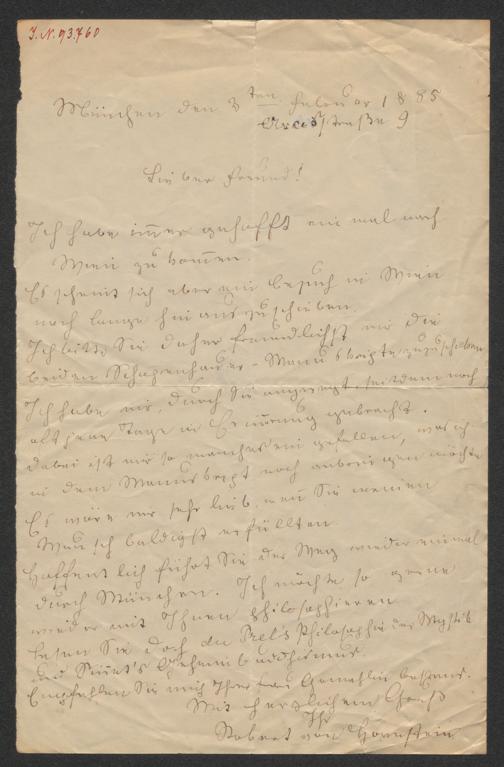 I.N. 93.760
München den 3ten Februar 1885
Arcisstraße 9
Lieber Freund!
Ich habe immer gehofft einmal nach
Wien zu kommen.
Es scheint sich aber ein Besuch in Wien
noch lange hinauszuschieben.
Ich bitte Sie daher freundlichst mir die
beiden Schopenhauer-Manuskripte zuzuschicken
Ich habe mir, durch Sie angeregt, seitdem noch
alle jene Tage in Erinnerung gebracht.
dabei ist mir so manches eingefallen, was ich
in dem Manuskript noch anbringen möchte
Es wäre mir sehr lieb wenn Sie meinen
Wunsch baldigst erfüllten.
Hoffentlich führt Sie der Weg wieder einmal
durch München. Ich möchte so gerne
wieder mit Ihnen philosophieren
Lesen Sie doch du Prel's Philosophie der Mystik
und Sinnet's Geheimbuddhismus.
Empfehlen Sie mich Ihrer Frau Gemahlin bestens.
Mit herzlichem Gruß
Ihr
Robert von Hornstein